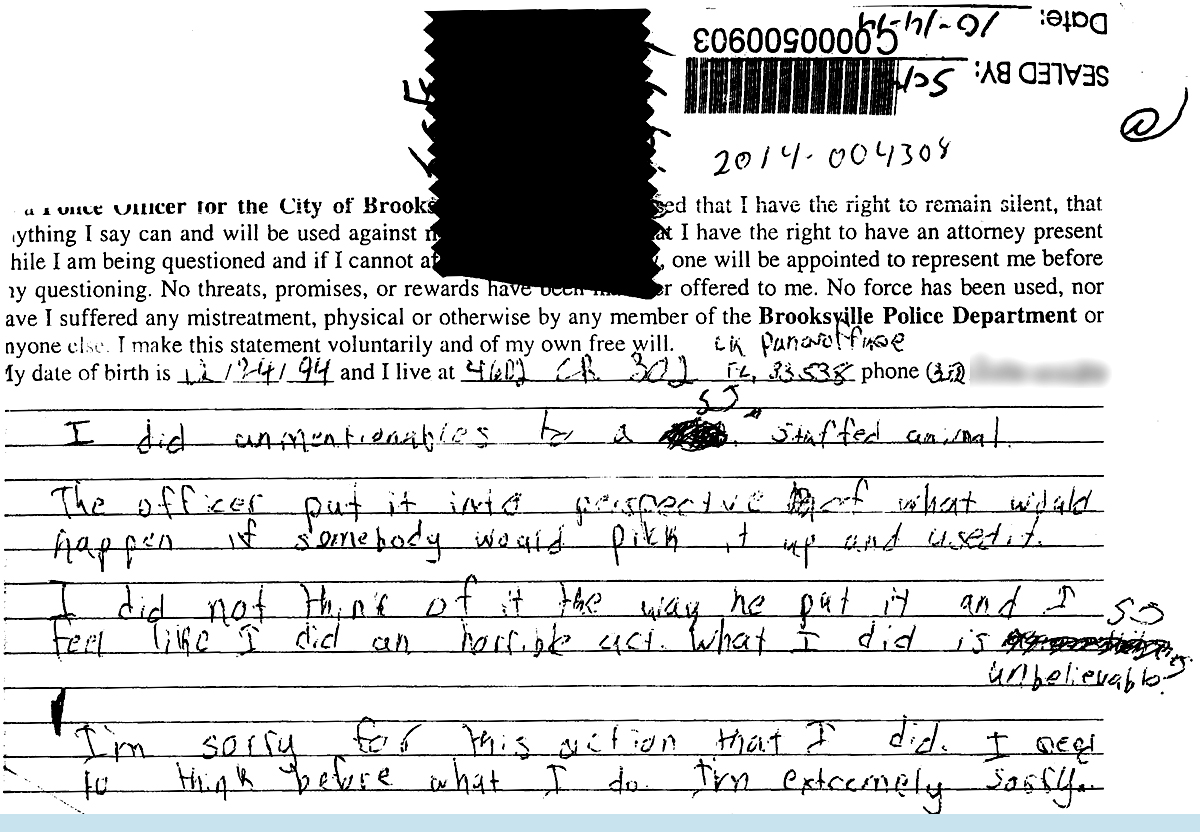 Date: 10-14-14
C0000500903
SEALED BY: SCJ
2014-004308
a Police Officer for the City of Brooks sed that I have the right to remain silent, that
ything I say can and will be used against m at I have the right to have an attorney present
hile I am being questioned and if I cannot af , one will be appointed to represent me before
ny questioning. No threats, promises, or rewards have been or offered to me. No force has been used, nor
ave I suffered any mistreatment, physical or otherwise by any member of the Brooksville Police Department or
nyone else. I make this statement voluntarily and of my own free will.
My date of birth is 12/24/94 and I live at CR 302 FL, 33538 phone (352)
SJ
I did unmentionables to a stuffed animal.
The officer put it into perspective of what would
happen if somebody would pikk it up and used it.
I did not think of it the way he put it and I
SJ
feel like I did an horrible act. What I did is
unbelievable.
I'm sorry for this action that I did. I need
to think before what I do. I'm extremely sorry.